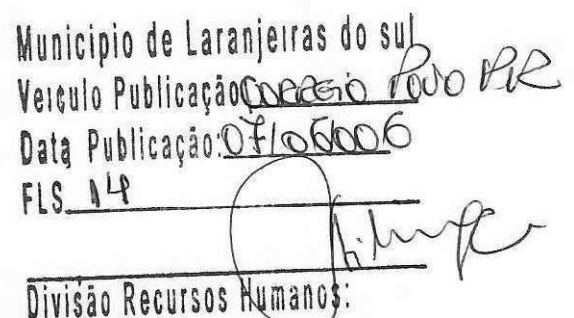 Municipio de Laranjeiras do sul
Veículo Publicação CORREIO POVO PR
Data Publicação: 07/06/006
FLS. 14
Divisão Recursos Humanos: